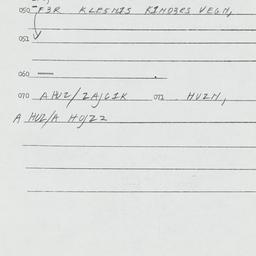 050 F3R KLESMIS KIND3RS VEGN,
051
060 —
070 A HUZ/ZAJCIK 071 HUZN,
A HUZ/A HOJZZ